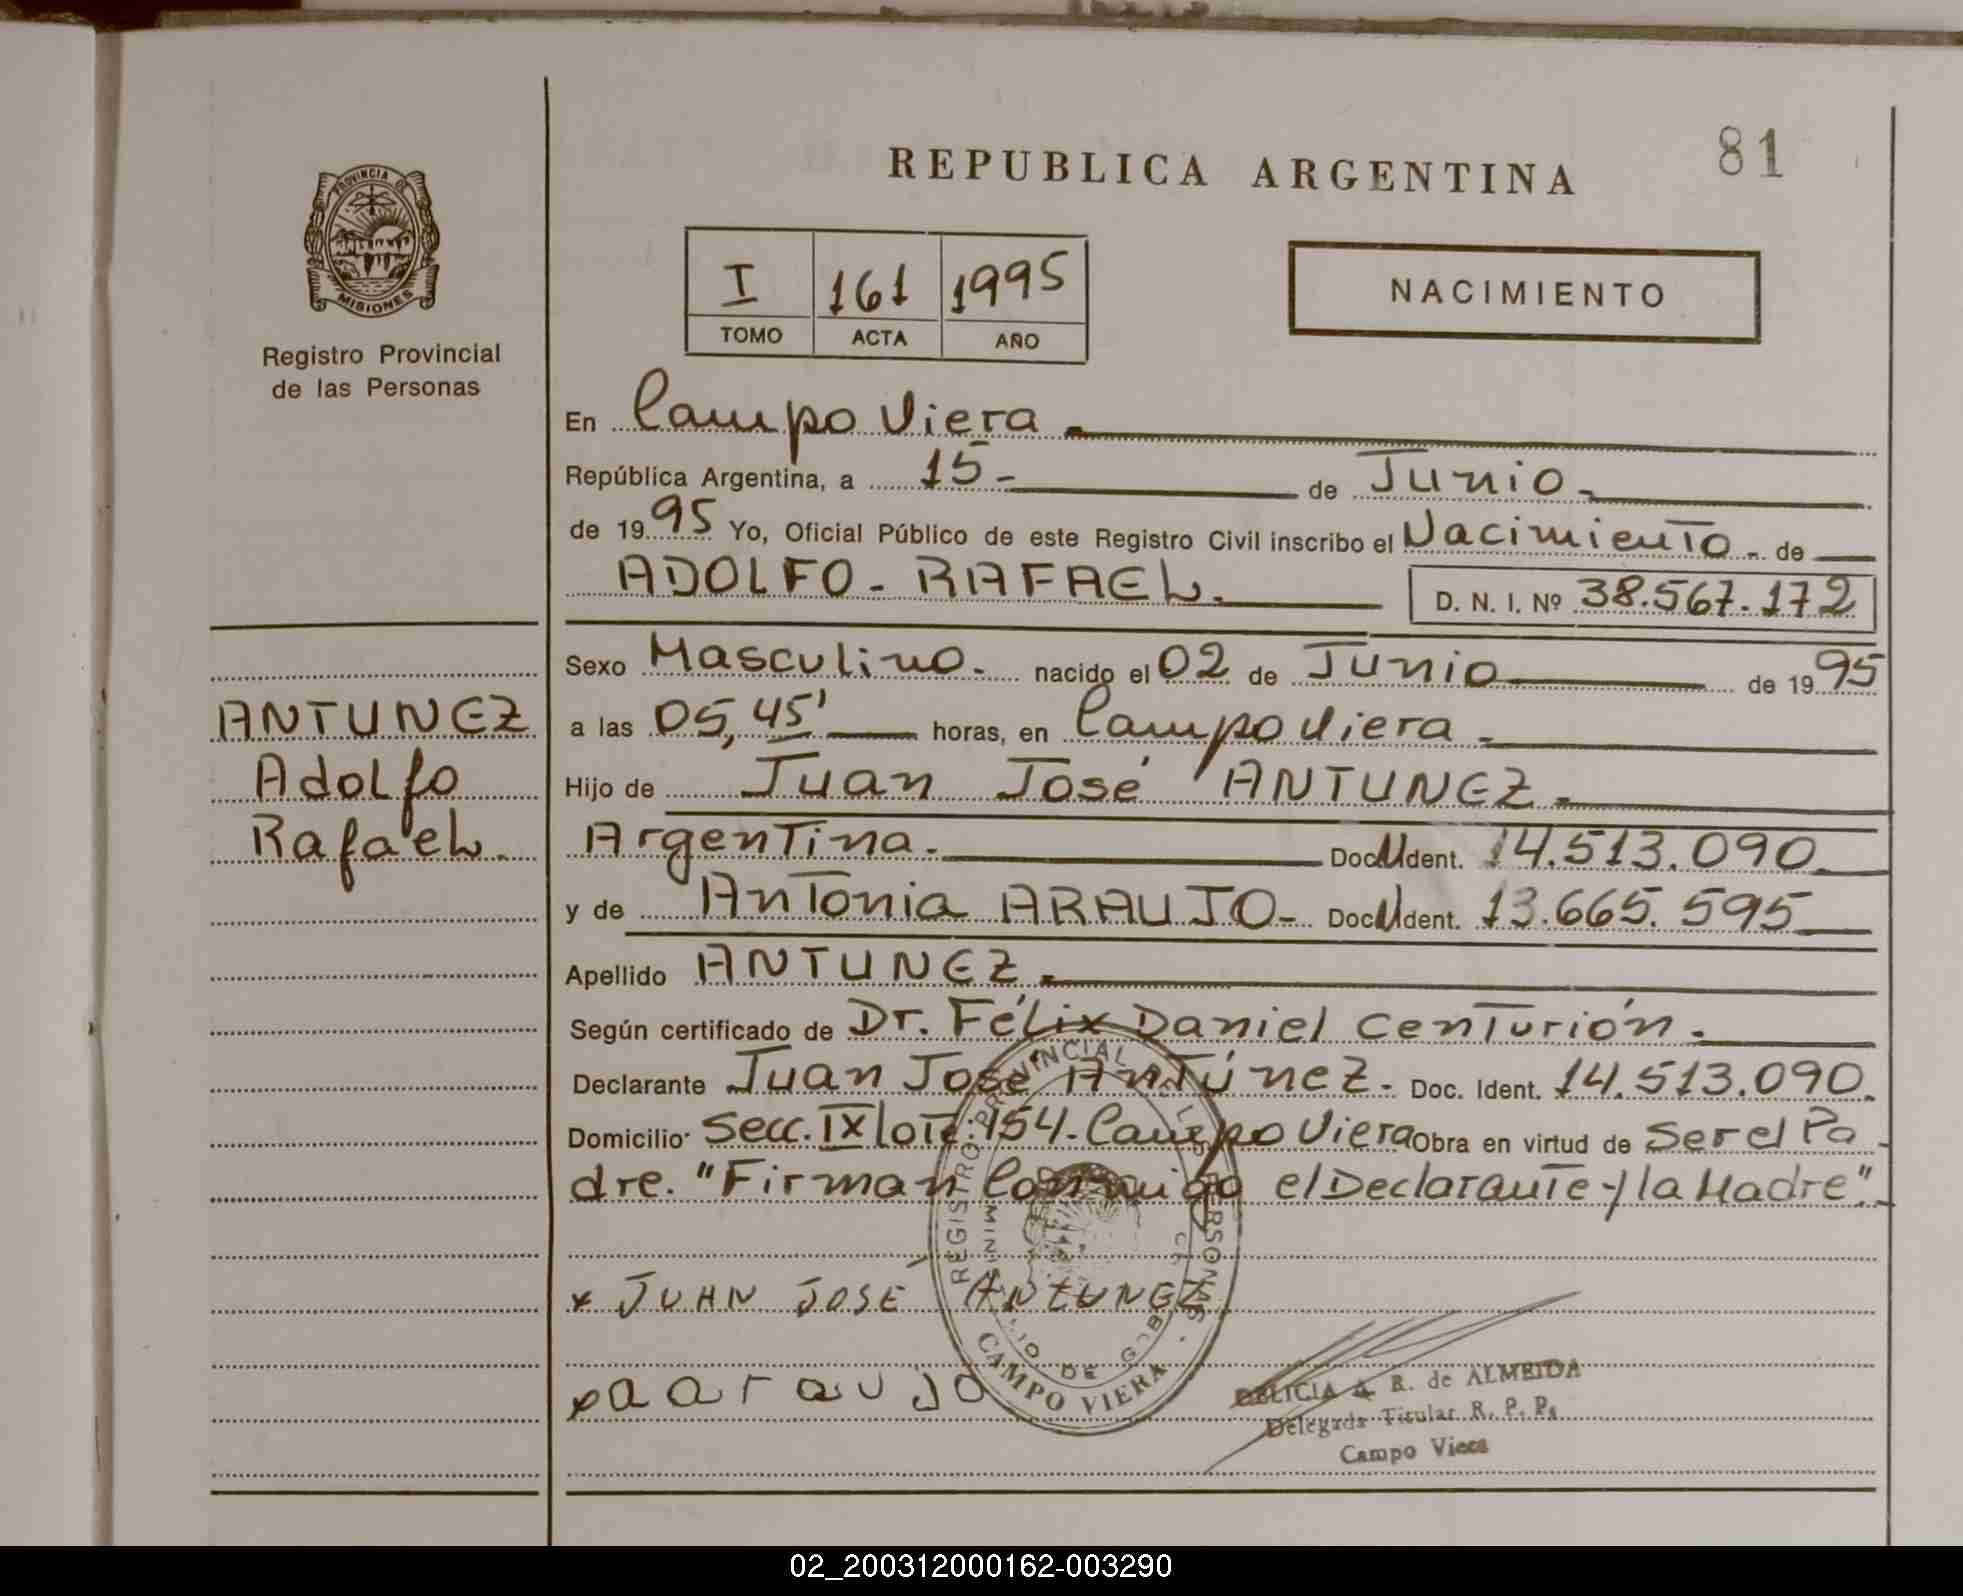 81
REPUBLICA ARGENTINA
PROVINCIA DE
MISIONES
Registro Provincial
de las Personas
I 161 1995
TOMO ACTA AÑO
NACIMIENTO
En Campo Viera
República Argentina, a 15 - de Junio.
de 1995 Yo, Oficial Público de este Registro Civil inscribo el Nacimiento - de
ADOLFO - RAFAEL. D. N. I. Nº 38.567.172
ANTUNEZ
Adolfo
Rafael.
Sexo Masculino. nacido el 02 de Junio de 1995
a las 05,45' horas, en Campo Viera
Hijo de Juan José ANTUNEZ.
Argentina. Doc. Ident. 14.513.090
y de Antonia ARAUJO - Doc. Ident. 13.665.595
Apellido ANTUNEZ.
Según certificado de Dr. Félix Daniel Centurión.
Declarante Juan José Antúnez. Doc. Ident. 14.513.090.
Domicilio Secc. IX lote 154. Campo Viera Obra en virtud de ser el Pa-
dre. "Firman Conmigo el Declarante y la Madre".
x JUAN JOSÉ ANTUNEZ
x a araujo
REGISTRO PROVINCIAL DE LAS PERSONAS
CAMPO VIERA
DELICIA A. R. de ALMEIDA
Delegada Titular R. P. P.
Campo Viera
02_200312000162-003290